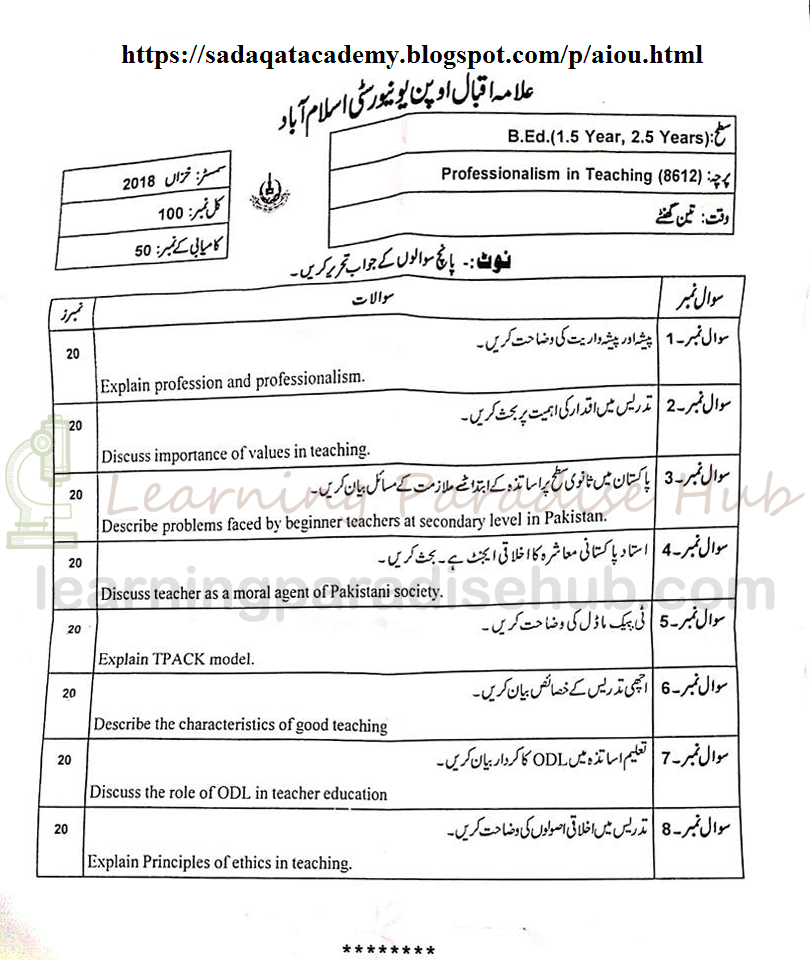 https://sadaqatacademy.blogspot.com/p/aiou.html
علامہ اقبال اوپن یونیورسٹی اسلام آباد
سطح: B.Ed.(1.5 Year, 2.5 Years)
پرچہ: Professionalism in Teaching (8612)
وقت: تین گھنٹے
سمسٹر: خزاں 2018
کل نمبر: 100
کامیابی کے نمبر: 50
نوٹ:- پانچ سوالوں کے جواب تحریر کریں۔
سوال نمبر سوالات نمبرز
سوال نمبر-1 پیشہ اور پیشہ واریت کی وضاحت کریں۔ 20
Explain profession and professionalism.
سوال نمبر-2 تدریس میں اقدار کی اہمیت پر بحث کریں۔ 20
Discuss importance of values in teaching.
سوال نمبر-3 پاکستان میں ثانوی سطح پر اساتذہ کے ابتدائے ملازمت کے مسائل بیان کریں۔ 20
Describe problems faced by beginner teachers at secondary level in Pakistan.
Learning Paradise Hub
سوال نمبر-4 استاد پاکستانی معاشرہ کا اخلاقی ایجنٹ ہے۔ بحث کریں۔ 20
Discuss teacher as a moral agent of Pakistani society.
learningparadisehub.com
سوال نمبر-5 ٹی پیک ماڈل کی وضاحت کریں۔ 20
Explain TPACK model.
سوال نمبر-6 اچھی تدریس کے خصائص بیان کریں۔ 20
Describe the characteristics of good teaching
سوال نمبر-7 تعلیم اساتذہ میں ODL کا کردار بیان کریں۔ 20
Discuss the role of ODL in teacher education
سوال نمبر-8 تدریس میں اخلاقی اصولوں کی وضاحت کریں۔ 20
Explain Principles of ethics in teaching.
********